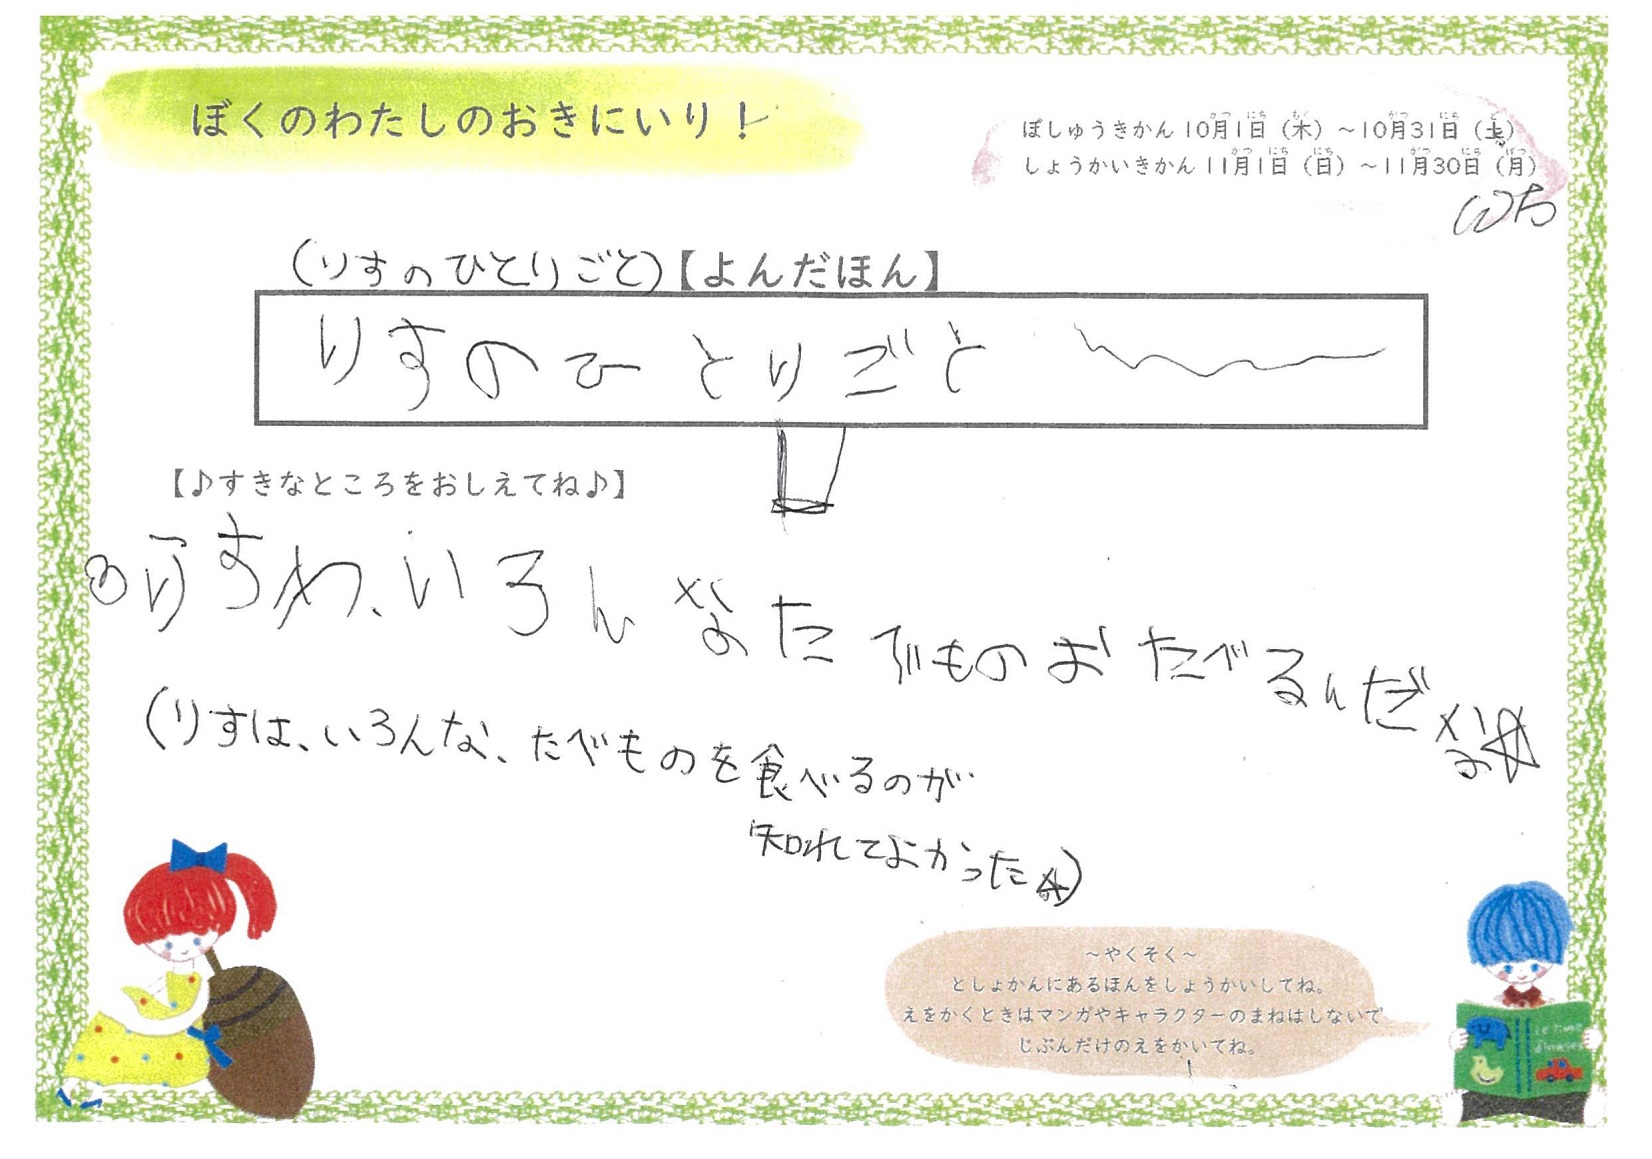 ぼくのわたしのおきにいり！
ぼしゅうきかん 10月1日（木）～10月31日（土）
しょうかいきかん 11月1日（日）～11月30日（月）
（りすのひとりごと）【よんだほん】
りすのひとりごと
【♪すきなところをおしえてね♪】
りすわ、いろんなたべものおたべるんだな
（りすは、いろんな、たべものを食べるのが
知れてよかった☆）
～やくそく～
としょかんにあるほんをしょうかいしてね。
えをかくときはマンガやキャラクターのまねはしないで
じぶんだけのえをかいてね。